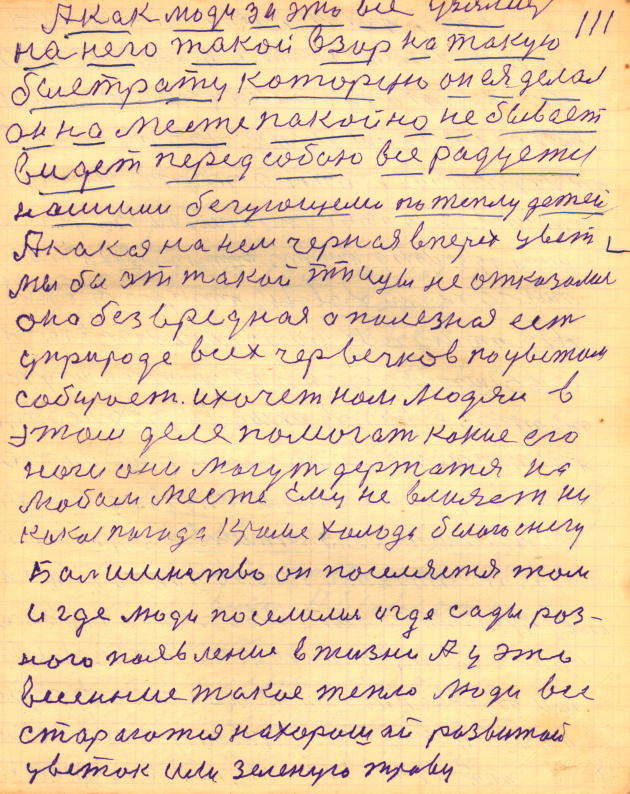 А как люди за это все
на него такой взор на такую
быстрату которую он ея делал
он на месте пакойно не бывает
видет перед собаю все радуетец
нашими бегующеми по теплу детей
А какая на нем черная в перех цвет
мы бы эт такой птицы не отказалис
она безвредная а полезная ест
у природе всех червечков по цветам
собирает. и хочет нам людям в
этом деле помогат какие его
ноги они могут держатся на
любом месте Ему не влияет ни
какая погода Кроме холода белого снегу
Балшинство он поселяется там
и где люди поселилис и где сады роз-
ного появление в жизни А у это
весенние такое тепло люди все
стараются на хороший развитой
цветок или зеленую траву
111